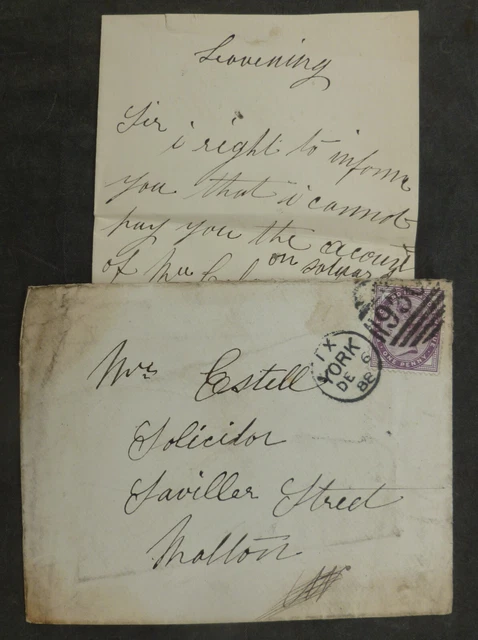 Leavening
Sir
i right to informe
you that i cannot
pay you the acount
of Mr on
Mrs Estell
Solicitor
Saviller Street
Malton
IX
YORK
DE 6
88
930
ONE PENNY